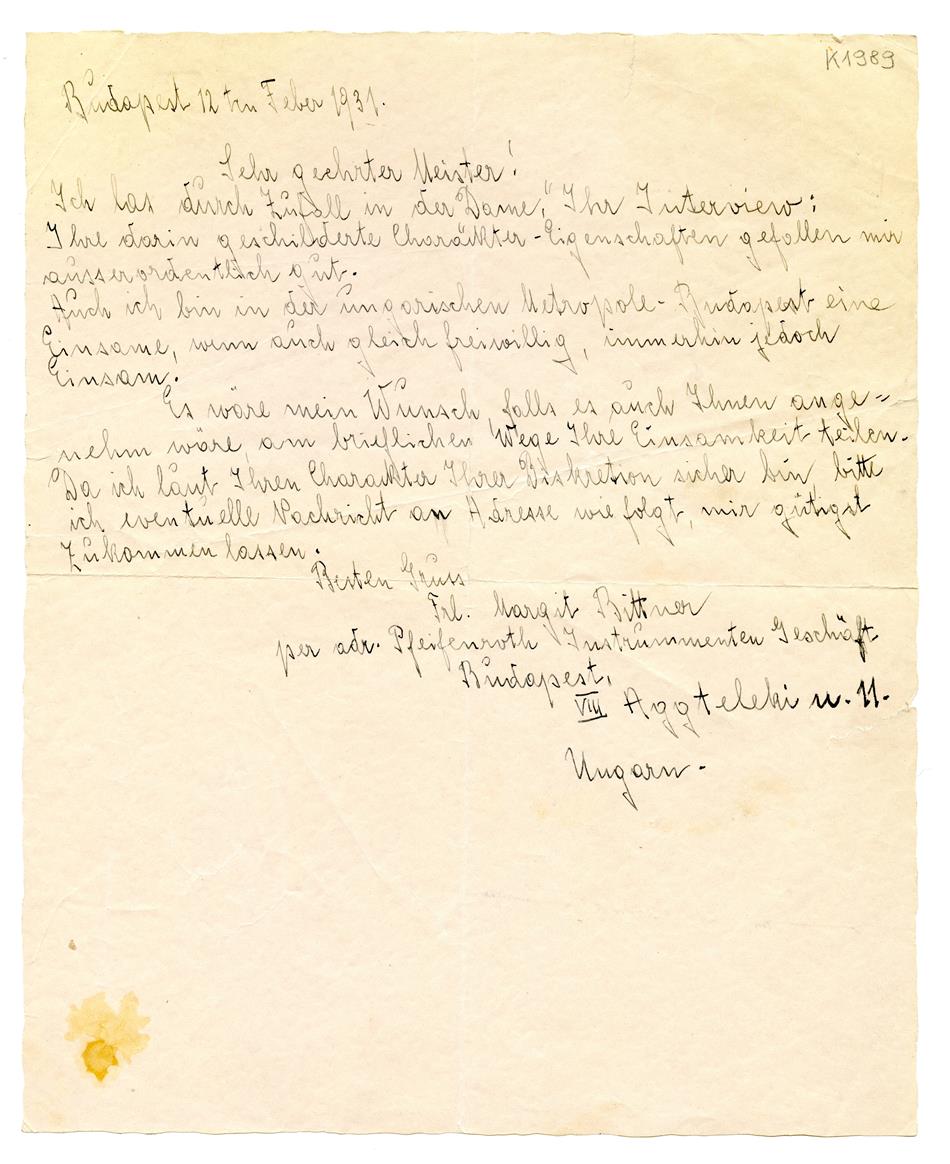 K1989
Budapest 12ten Feber 1931.
Sehr geehrter Meister!
Ich las durch Zufall in der "Dame," Ihr Interview:
Ihre darin geschilderte Charäkter-Eigenschaften gefallen mir
ausserordentlich gut.
Auch ich bin in der ungarischen Metropole - Budapest eine
Einsame, wenn auch gleich freiwillig, immerhin jedoch
Einsam.
Es wäre mein Wunsch, falls es auch Ihnen ange=
nehm wäre, am brieflichen Wege Ihre Einsamkeit teilen.
Da ich laut Ihren Charakter Ihrer Diskretion sicher bin, bitte
ich eventuelle Nachricht an Adresse wie folgt, mir gütigst
Zukommen lassen.
Besten Gruss
Frl. Margit Bittner
per adr. Pfeifenroth Instrummenten Geschäft
Budapest,
VIII Aggteleki u. 11.
Ungarn.